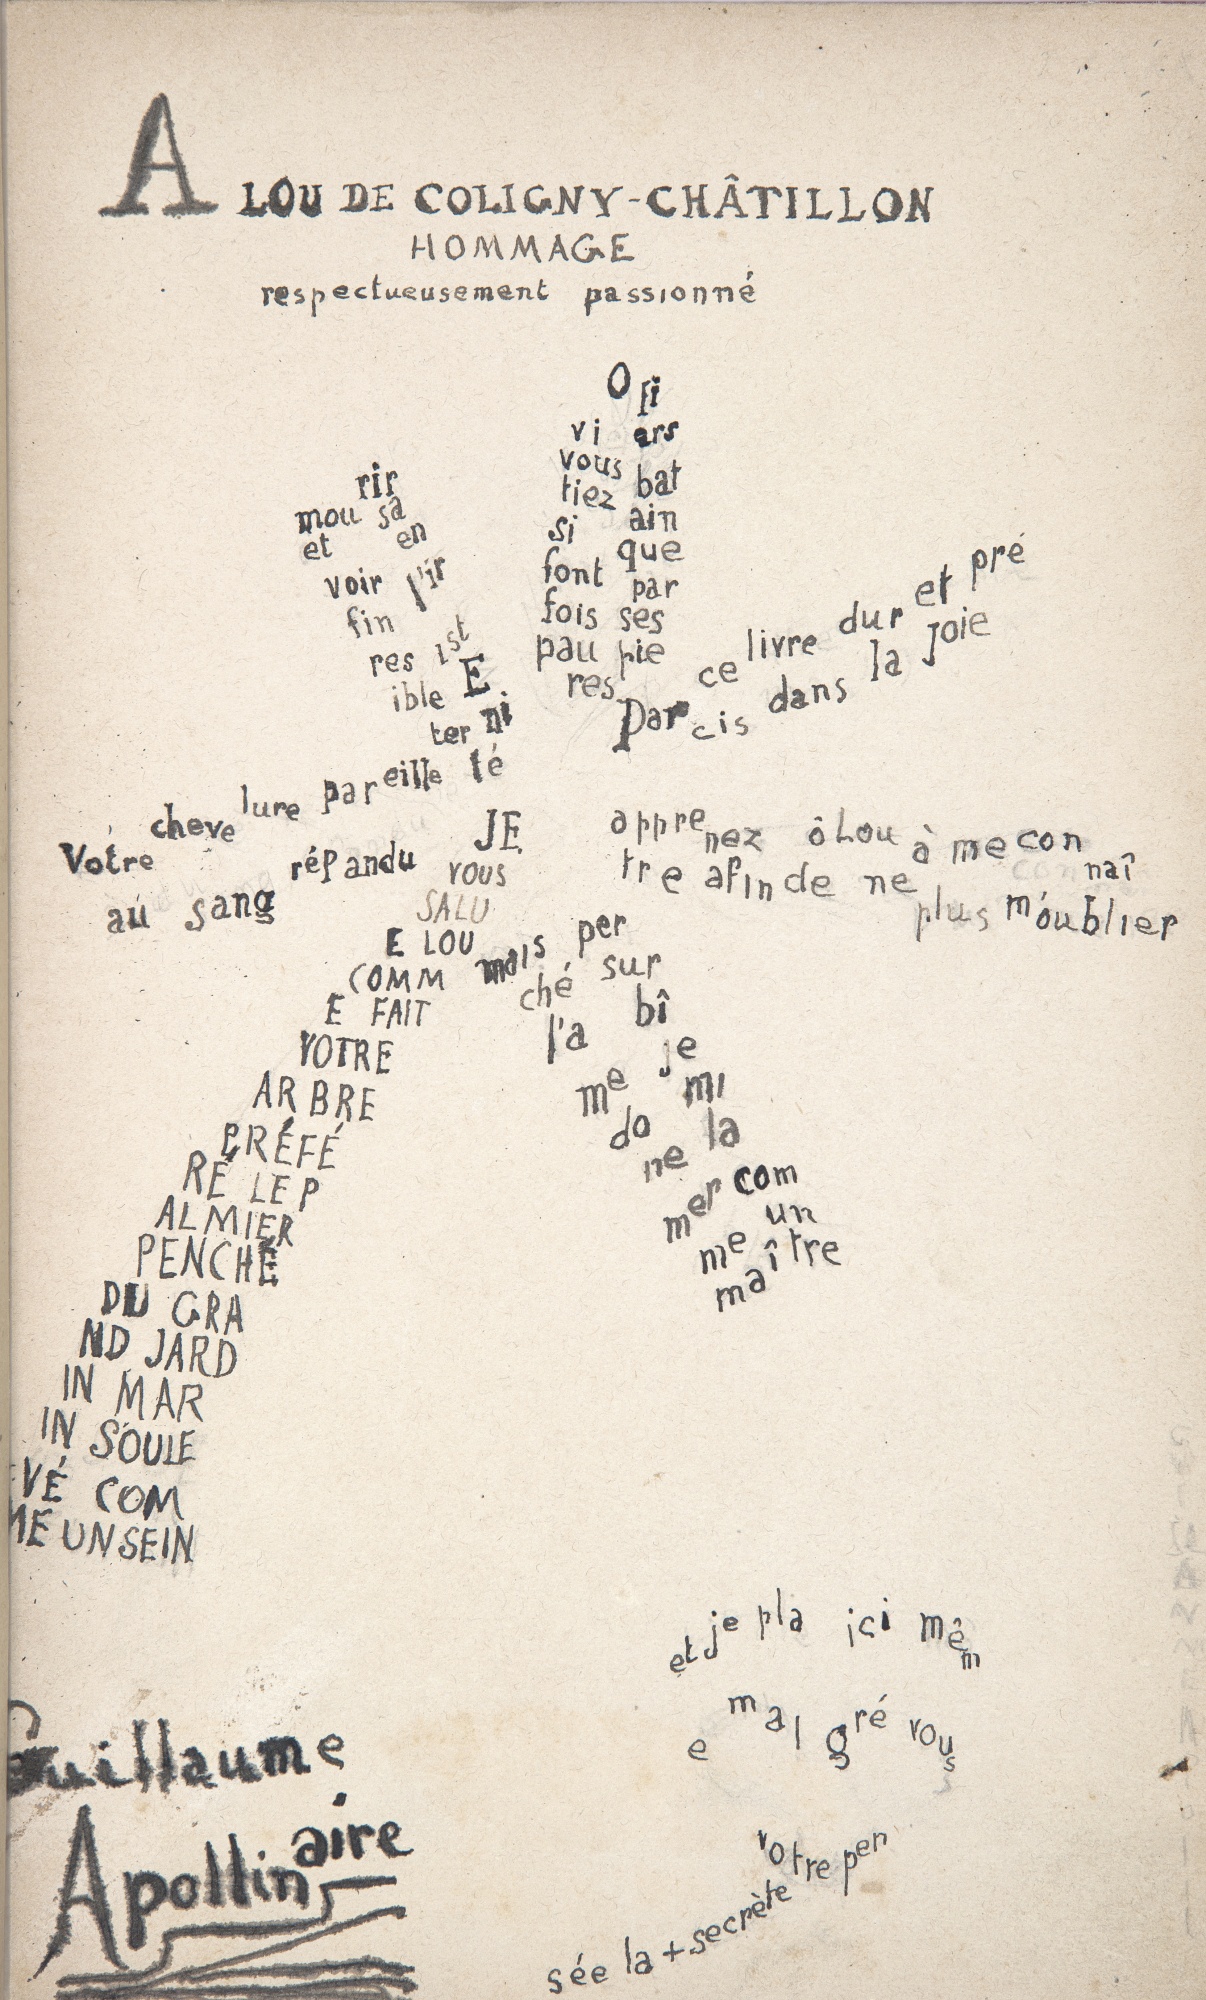 A LOU DE COLIGNY-CHÂTILLON
HOMMAGE
respectueusement passionné
O fi
vi ers
vous bat
tiez ain
si que
font par
fois ses
pau pie
res
rir
mou sa
et en
voir l'ir
fin ist
res E
ible ni
ter té
Par ce livre dur et pré
cis dans la Joie
Votre chevelure pareille
au sang répandu
apprenez ô Lou à me con naî
tre afin de ne plus m'oublier
JE
VOUS
SALU
E LOU
COMM
E FAIT
VOTRE
ARBRE
PRÉFÉ
RÉ LE P
ALMIER
PENCHÉ
DU GRA
ND JARD
IN MAR
IN SOULE
VÉ COM
ME UN SEIN
mais per
ché sur
l'a bî
me je
do mi
ne la
mer com
me un
maître
et je pla ici mêm
e malgré vous
votre pen
sée la + secrète
Guillaume
Apollinaire